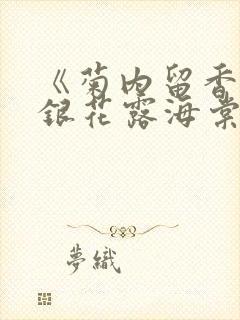 《菊内留香
銀花露海棠
夢織